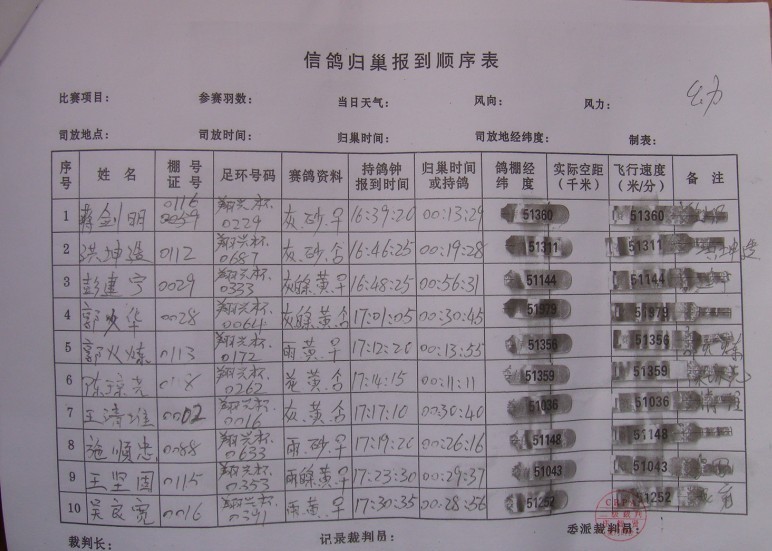 信鸽归巢报到顺序表
比赛项目： 参赛羽数： 当日天气： 风向： 风力：
司放地点： 司放时间： 归巢时间： 司放地经纬度： 制表：
序号 姓名 棚号证号 足环号码 赛鸽资料 持鸽钟报到时间 归巢时间或持鸽 鸽棚经纬度 实际空距（千米） 飞行速度（米/分） 备注
1 蒋剑明 0116 0059 翔兴杯.0229 灰.砂.早 16:39:20 00:13:29 51360 51360
2 洪坤 0112 翔兴杯.0687 灰.砂.舍 16:46:25 00:19:28 51311 51311
3 彭建宁 0029 翔兴杯.0333 灰绦黄早 16:48:25 00:56:31 51144 51144
4 郭火华 0028 翔兴杯.0064 灰绦黄舍 17:01:05 00:30:45 51979 51979
5 郭火炼 0113 翔兴杯.0172 雨黄.早 17:12:20 00:13:55 51356 51356
6 陈琼 翔兴杯.0262 黄舍 17:14:15 00:11:11 51359 51359
7 王清 0002 翔兴杯.0016 灰.黄舍 17:17:10 00:30:40 51036 51036
8 施顺忠 0088 翔兴杯.0633 雨.砂.早 17:19:20 00:26:16 51148 51148
9 王坚固 0115 翔兴杯.0353 雨绦黄早 17:23:30 00:29:37 51043 51043
10 吴良宽 0016 翔兴杯. 雨黄.早 17:30:35 00:28:56 51252 51252
裁判长： 记录裁判员： 委派裁判员：